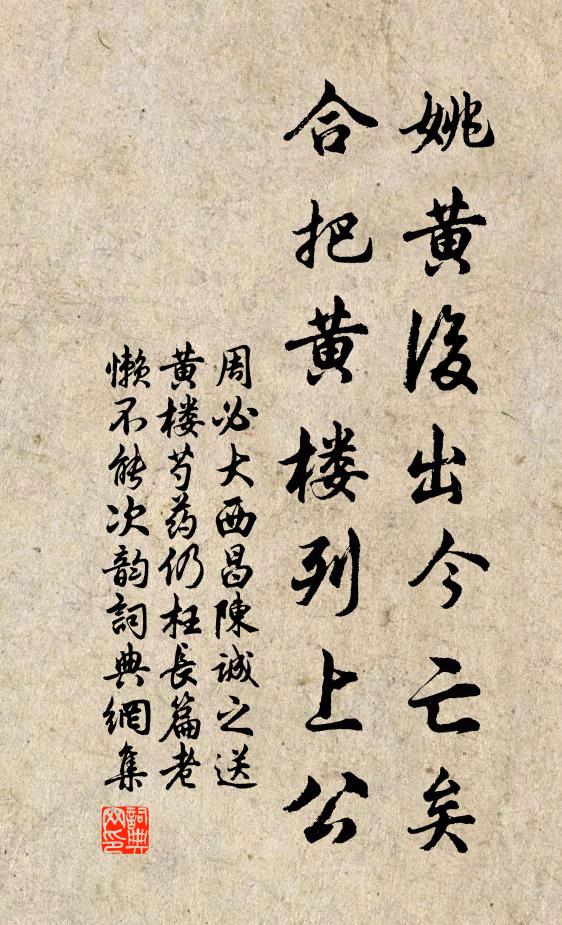 姚黄後出今亡矣
合把黄楼列上公
周必大西昌陳诚之送
黄楼芍药仍枉長篇老
懒不能次韵詞典網集
詞典
网印